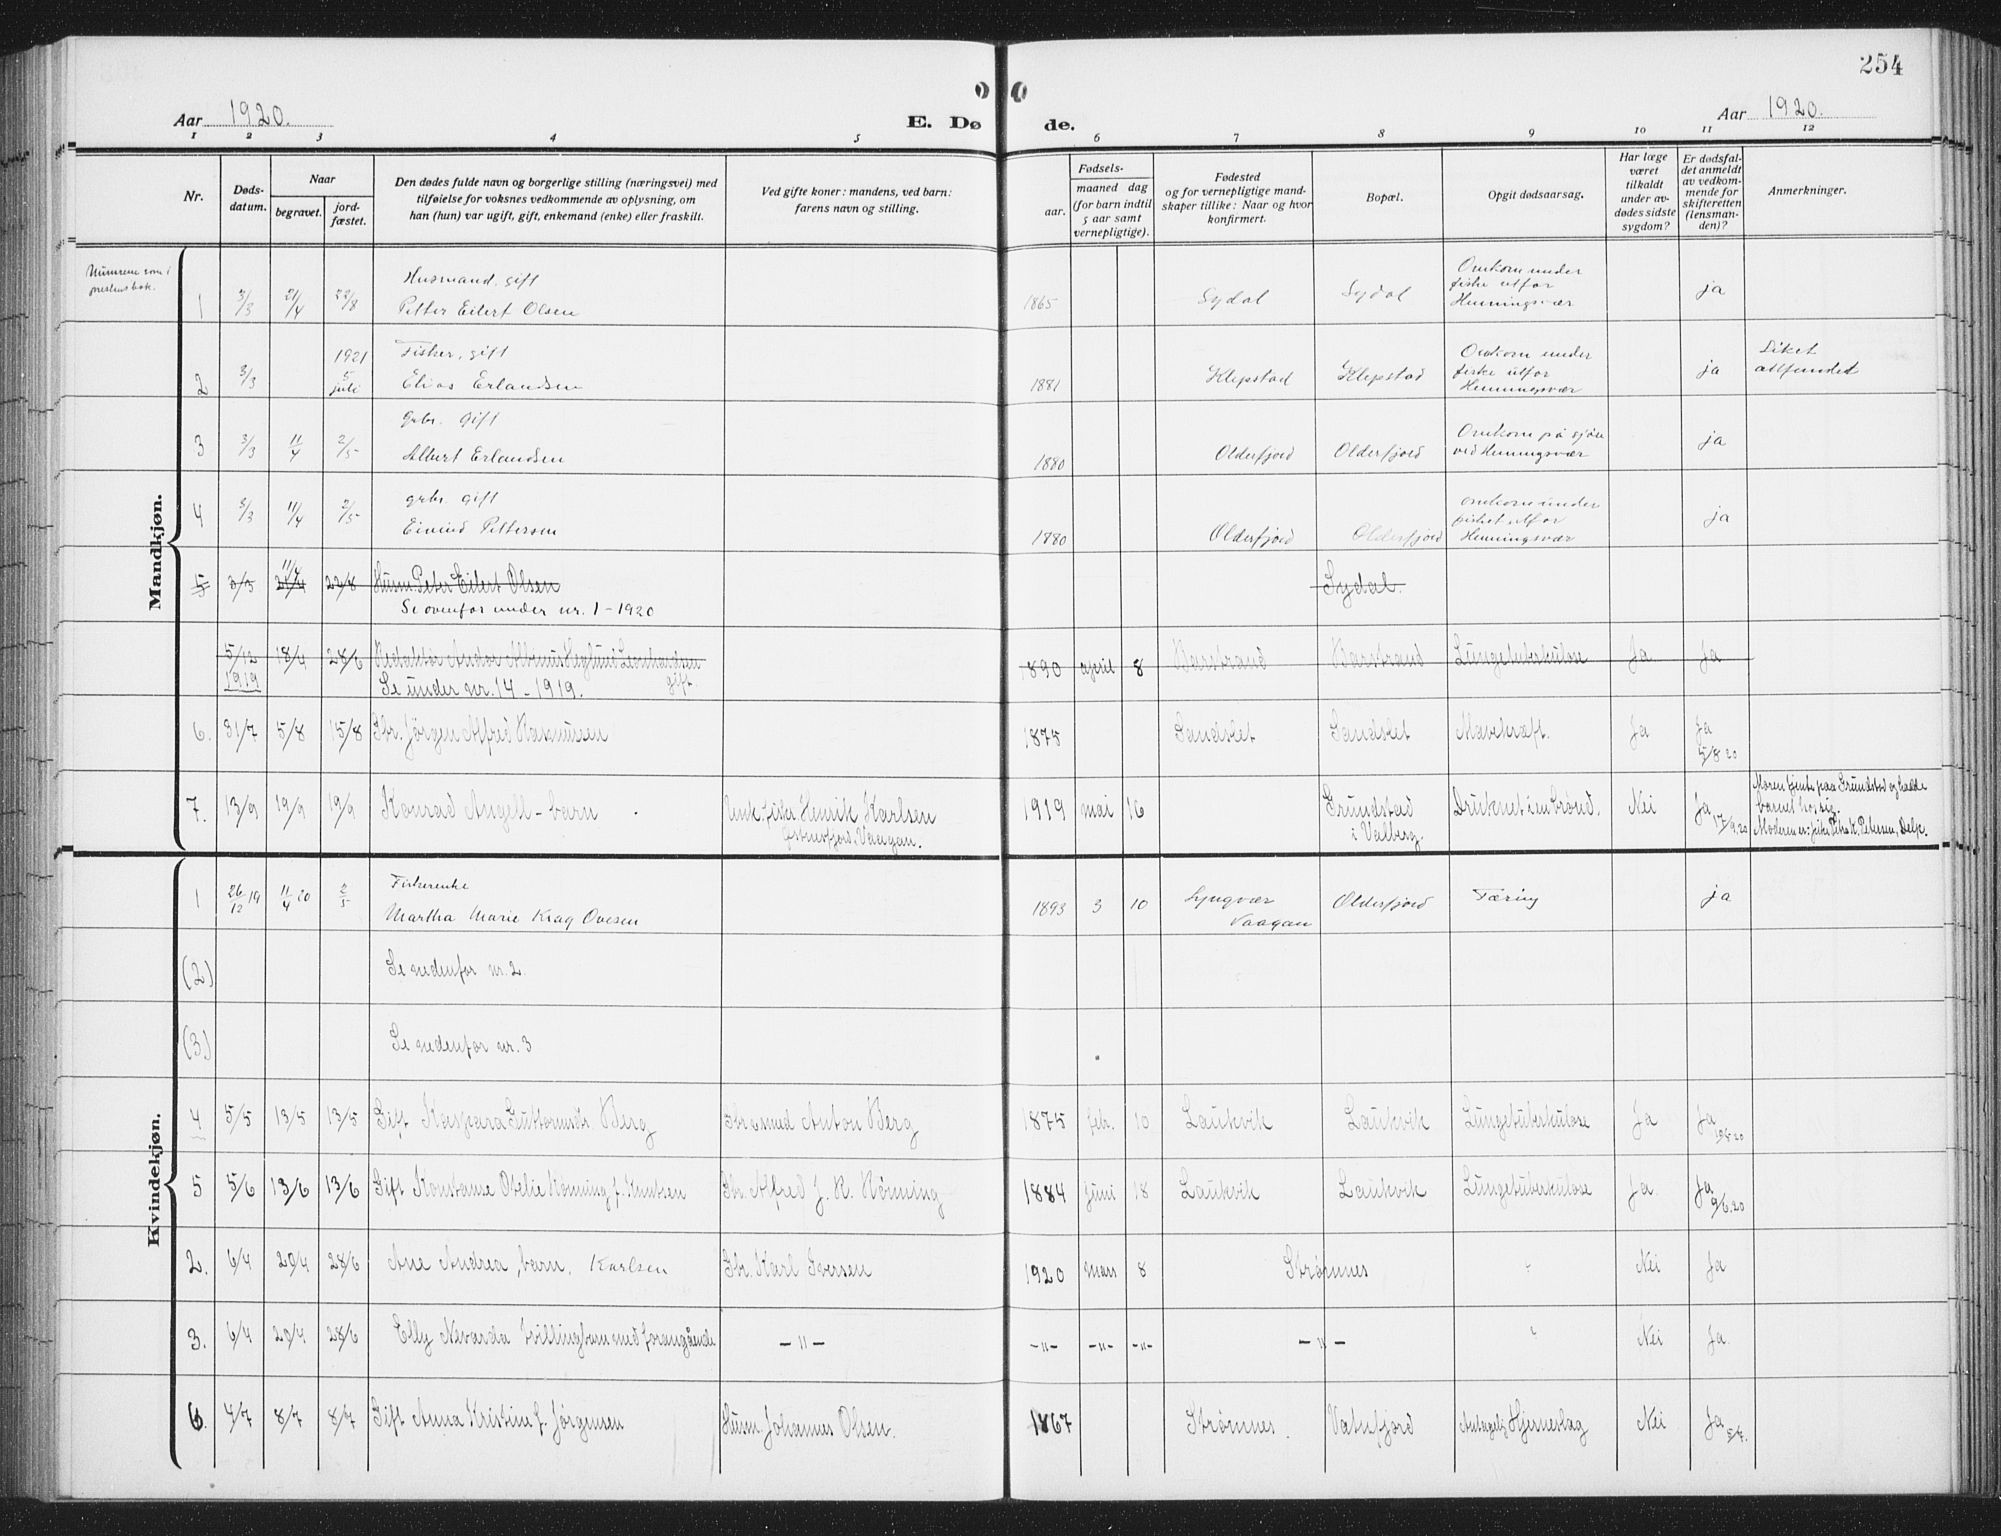 254
Aar 1920.
E. Døde.
Aar 1920.
1 2 3 4 5 6 7 8 9 10 11 12
Nr.
Døds-
datum.
Naar
begravet.
jord-
fæstet.
Den dødes fulde navn og borgerlige stilling (næringsvei) med
tilføielse for voksnes vedkommende av oplysning, om
han (hun) var ugift, gift, enkemand (enke) eller fraskilt.
Ved gifte koner: mandens, ved barn:
farens navn og stilling.
Fødsels-
aar.
maaned dag
(for barn indtil
5 aar samt
vernepligtige).
Fødested
og for vernepligtige mand-
skaper tillike: Naar og hvor
konfirmert.
Bopæl.
Opgit dødsaarsag.
Har læge
været
tilkaldt
under av-
dødes sidste
sygdom?
Er dødsfal-
det anmeldt
av vedkom-
mende for
skifteretten
(lensman-
den)?
Anmerkninger.
Numrene som i
prestens bok.
Mandkjøn.
1 3/3 21/4 22/8 Husmand, gift
Petter Eilert Olsen 1865 Sydal Sydal Omkom under
fiske utfor
Henningsvær ja
2 3/3 1921
5
juli Fisker, gift
Elias Erlandsen 1881 Klepstad Klepstad Omkom under
fiske utfor
Henningsvær ja Liket
attfundet
3 3/3 11/4 2/5 grbr. gift
Albert Erlandsen 1880 Olderfjord Olderfjord Omkom på sjøen
ved Henningsvær ja
4 3/3 11/4 2/5 grbr. gift
Eivind Pettersen 1880 Olderfjord Olderfjord omkom under
fisket utfor
Henningsvær ja
5 3/3 21/4 11/4 22/8 Husm. Peter Eilert Olsen Sydal.
Se ovenfor under nr. 1 - 1920
5/12
1919 18/4 28/6 Redaktør Andor Leonhardsen
gift. 1890 april 8 Barstrand Barstrand Lungetuberkulose Ja Ja
Se under nr. 14 - 1919.
6. 31/7 5/8 15/8 Gbr. Jørgen Alfred Rasmussen 1875 Sandslet Sandslet Mavekræft. Ja Ja
5/8 20
7. 13/9 19/9 19/9 Konrad Angell - barn Unk. fisker Henrik Karlsen
Østnesfjord, Vaagan. 1919 mai 16 Grundstad
i Valberg. Druknet i en brønd. Nei Ja
17/9.20 Moren tjente paa Grundstad og hadde
barnet hos sig.
Moderen er: pike Petra K. Petersen, Delp.
Kvindekjøn.
1 26/12 19 11/4 20 2/5 Fiskerenke
Martha Marie Krag Ovesen 1893 3 10 Lyngvær
Vaagan Olderfjord Tæring ja
(2) Se nedenfor nr. 2.
(3) Se nedenfor nr. 3
4 5/5 13/5 13/5 Gift Kaspara Guttormsdr. Berg Anton Berg 1875 febr. 10 Laukvik Laukvik Lungetuberkulose Ja Ja
5 5/6 13/6 13/6 Gift Konstanse Otelie Rønning f. Knutsen Gbr. Alfred J. R. Rønning 1884 juni 18 Laukvik Laukvik Lungetuberkulose Ja. Ja
9/6.20
2. 6/4 20/4 28/6 Ane Andrea, barn. Karlsen Gbr. Karl Iversen 1920 mars 8 Strømnes ? Nei Ja
3. 6/4 20/4 28/6 Elly Nivarda tvillingbarn med forangående - " - - " - - " - - " - - " - ? Nei Ja.
6. 4/7 8/7 8/7 Gift Anna Kristine f. Jørgensen Husm. Johannes Olsen. 1867 Strømnes. Vatnfjord Antagelig Hjerneslag Nei Ja
5/7.